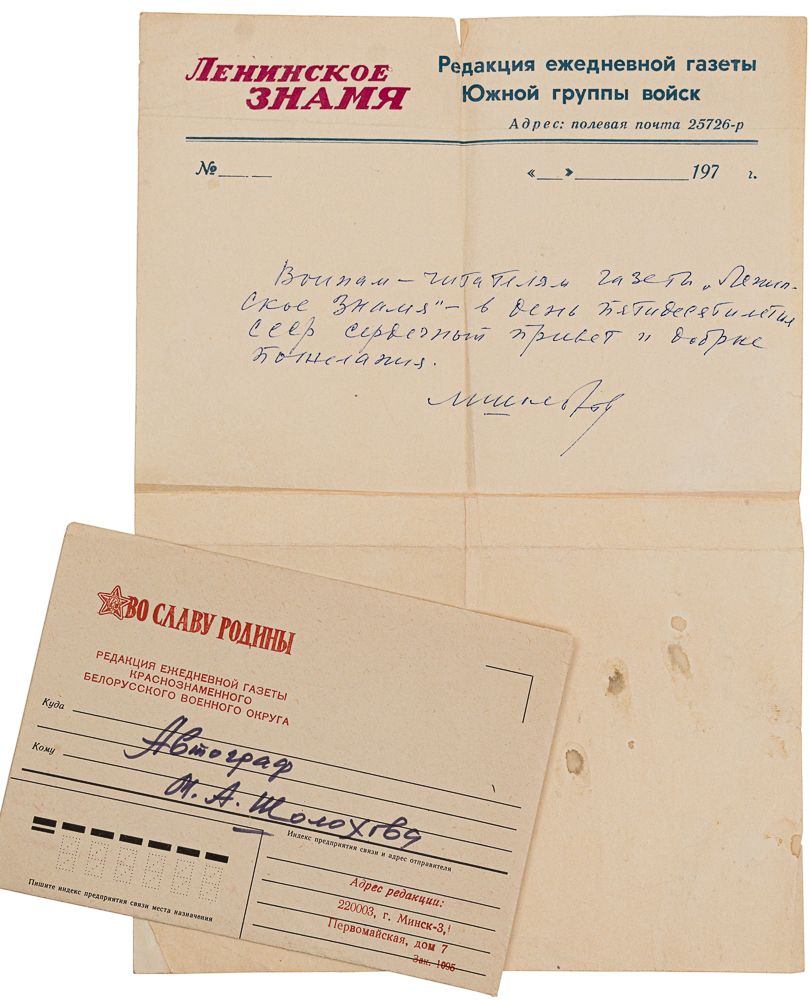 ЛЕНИНСКОЕ
ЗНАМЯ
Редакция ежедневной газеты
Южной группы войск
Адрес: полевая почта 25726-р
№
« » 197 г.
Воинам – читателям газеты „Ленин-
ское Знамя" – в день пятидесятилетия
СССР сердечный привет и добрые
пожелания.
ВО СЛАВУ РОДИНЫ
РЕДАКЦИЯ ЕЖЕДНЕВНОЙ ГАЗЕТЫ
КРАСНОЗНАМЕННОГО
БЕЛОРУССКОГО ВОЕННОГО ОКРУГА
Куда
Кому
Автограф
М. А. Шолохова
Индекс предприятия связи и адрес отправителя
Пишите индекс предприятия связи места назначения
Адрес редакции:
220003, г. Минск-3,
Первомайская, дом 7
Зак. 1095